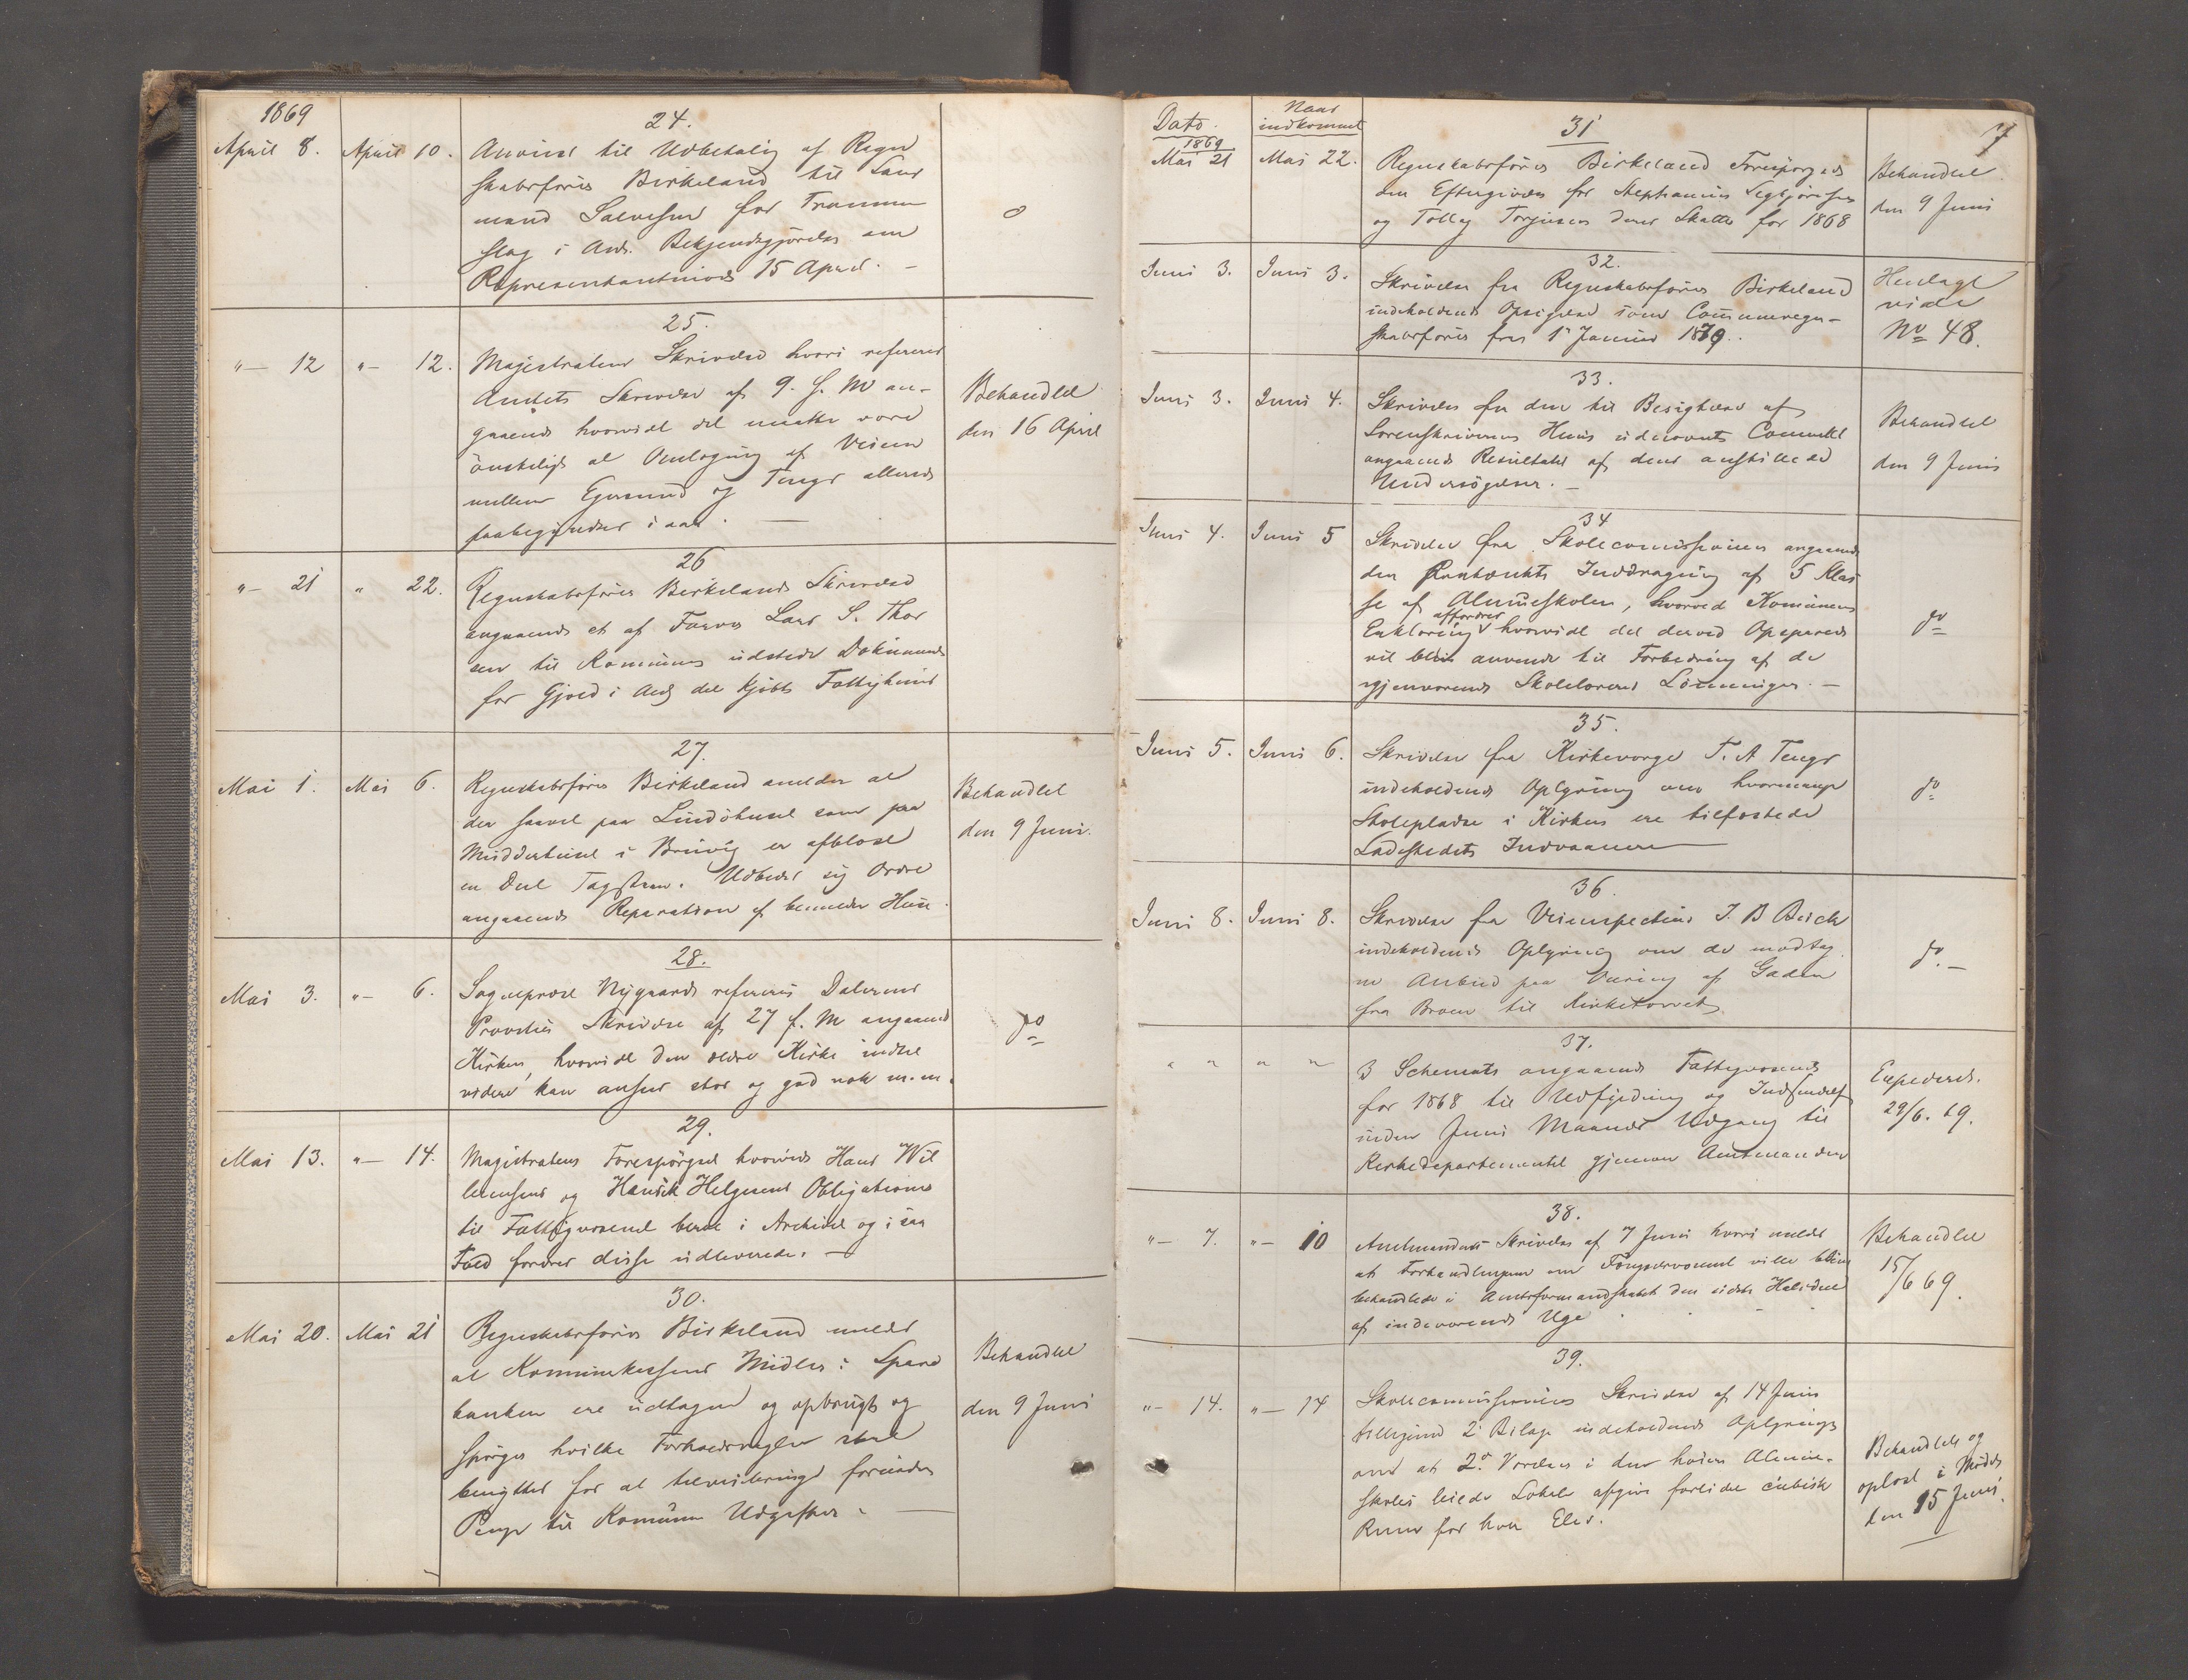 1869
24.
April 8. April 10. Anviist til Udbetaling af Regn
skabsfører Birkeland til Lens
mand Salvesen for Tromme
slag i Anl. Bekjendtgjørelse om
Representantmøde 15 April. —
25.
"— 12 "— 12. Magistratens Skrivelse hvori refereres
Amtets Skrivelse af 9. f. M an-
gaaende hvorvidt det maatte være
ønskeligt at Omlægning af Veien
mellem Egersund og Tengs allerede
paabegyndes i aar. —
Behandlet
den 16 April
26
"— 21 " 22. Regnskabsfører Birkelands Skrivelse
angaaende et af Farver Lars S. Thor
sen til Kommunen udstedt Dokument
for Gjæld i Anl. det kjøbte Fattighuus
27.
Mai 1. Mai 6. Regnskabsfører Birkeland melder at
der saavel paa Lindøhuset som paa
Mudderhuset i Bruvig er afblæst
en Deel Tagsteen. Udbeder sig Ordre
angaaende Reparation af bemeldte Huse.
Behandlet
den 9 Juni.
28.
Mai 3. "— 6. Sogneprest Nygaard refererer Dalernes
Provsties Skrivelse af 27 f. M angaaende
Kirken, hvorvidt den ældre Kirke indtil
videre kan ansees stor og god nok m. m.
do
29.
Mai 13. "— 14. Magistratens Forespørgsel hvorvidt Hans Wil
lumsens og Henrik Helgesens Obligationer
til Fattigvæsenet beroe i Archivet og i saa
Fald fordres disse udleverede. —
30.
Mai 20. Mai 21 Regnskabsfører Birkeland melder
at Kommunekassens Midler i Spare
banken ere udtagne og opbrugt og
spørger hvilke Forholdsregler skal
benyttes for at tilveiebringe fornødne
Penge til Kommunens Udgifter. —
Behandlet
den 9 Juni
Dato. Naar
indkommet
1869
7
31
Mai 21 Mai 22. Regnskabsfører Birkeland Forespørges
om Eftergivelse for Stephanius Segbjørnsen
og Tolleg Torjusen deres Skatter for 1868
Behandlet
den 9 Juni
32.
Juni 3. Juni 3. Skrivelse fra Regnskabsfører Birkeland
indeholdende Opsigelse som Communeregn-
skabsfører fra 1 Januar 1870.
Henlagt
vide
No 48.
33.
Juni 3. Juni 4. Skrivelse fra den til Besigtelse af
Sorenskriverens Huus udnævnte Committe
angaaende Resultatet af dens anstillede
Undersøgelser. —
Behandlet
den 9 Juni
34
Juni 4. Juni 5 Skrivelse fra Skolecommissionen angaaende
den paatænkte Inddragning af 5 Klas
se af Almueskolen, hvorved Kommunens
Erklæring affordres hvorvidt det derved Opsparede
vil blive anvendt til Forbedring af de
igjenværende Skolelæreres Lønninger. —
do
35.
Juni 5. Juni 6. Skrivelse fra Kirkeværge T. A Tengs
indeholdende Oplysning om hvormange
Stolepladse i Kirken ere tilfæstede
Ladestedets Indvaanere —
do
36.
Juni 8. Juni 8. Skrivelse fra Veiinspecteur J. B Beick
indeholdende Oplysning om de modtag
ne Anbud paa Veiring af Gaden
fra Broen til Kirketorvet
do. —
37.
" " " " 3 Schemata angaaende Fattigvæsenet
for 1868 til Udfyldning og Indsendelse
inden Juni Maaneds Udgang til
Kirkedepartementet gjennem Amtmanden
Expederet.
29/6. 69.
38.
"— 7. "— 10 Amtmandens Skrivelse af 7 Juni hvori meldes
at Forhandlingerne om Fængselsvæsenet ville blive
behandlede i Amtsformandskabet den sidste Halvdeel
af indeværende Uge
Behandlet
15/6 69.
39.
"— 14. "— 14 Skolecommissionens Skrivelse af 14 Juni
tilligemed 2 Bilage indeholdende Oplysninger
om at 2. Værelser i den høiere Almue-
skoles leiede Lokale afgive forlidet cubisk
Rum for hver Elev.
Behandlet og
oplæst i Møde
den 15 Juni.